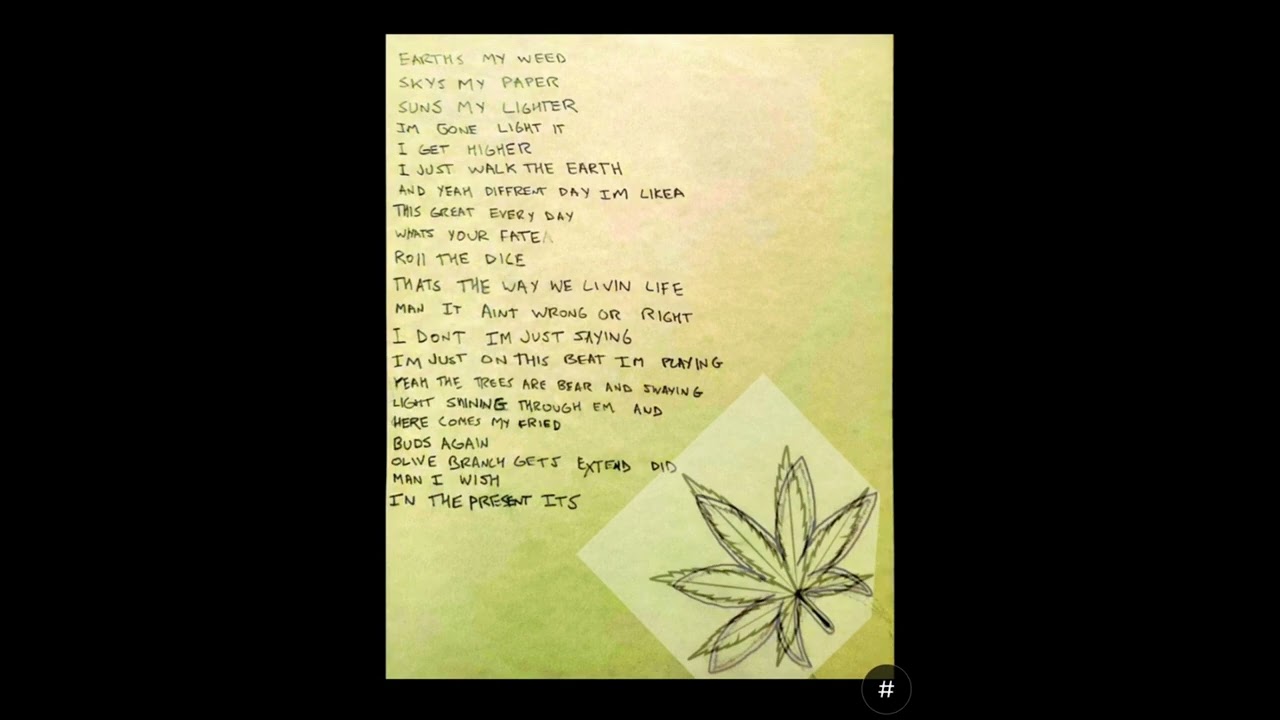 EARTHS MY WEED
SKYS MY PAPER
SUNS MY LIGHTER
IM GONE LIGHT IT
I GET HIGHER
I JUST WALK THE EARTH
AND YEAH DIFFRENT DAY IM LIKEA
THIS GREAT EVERY DAY
WHATS YOUR FATE
ROll THE DICE
THATS THE WAY WE LIVIN LIFE
MAN IT AINT WRONG OR RIGHT
I DONT IM JUST SAYING
IM JUST ON THIS BEAT IM PLAYING
YEAH THE TREES ARE BEAR AND SWAYING
LIGHT SHINING THROUGH EM AND
HERE COMES MY FRIED
BUDS AGAIN
OLIVE BRANCH GETS EXTEND DID
MAN I WISH
IN THE PRESENT ITS
#